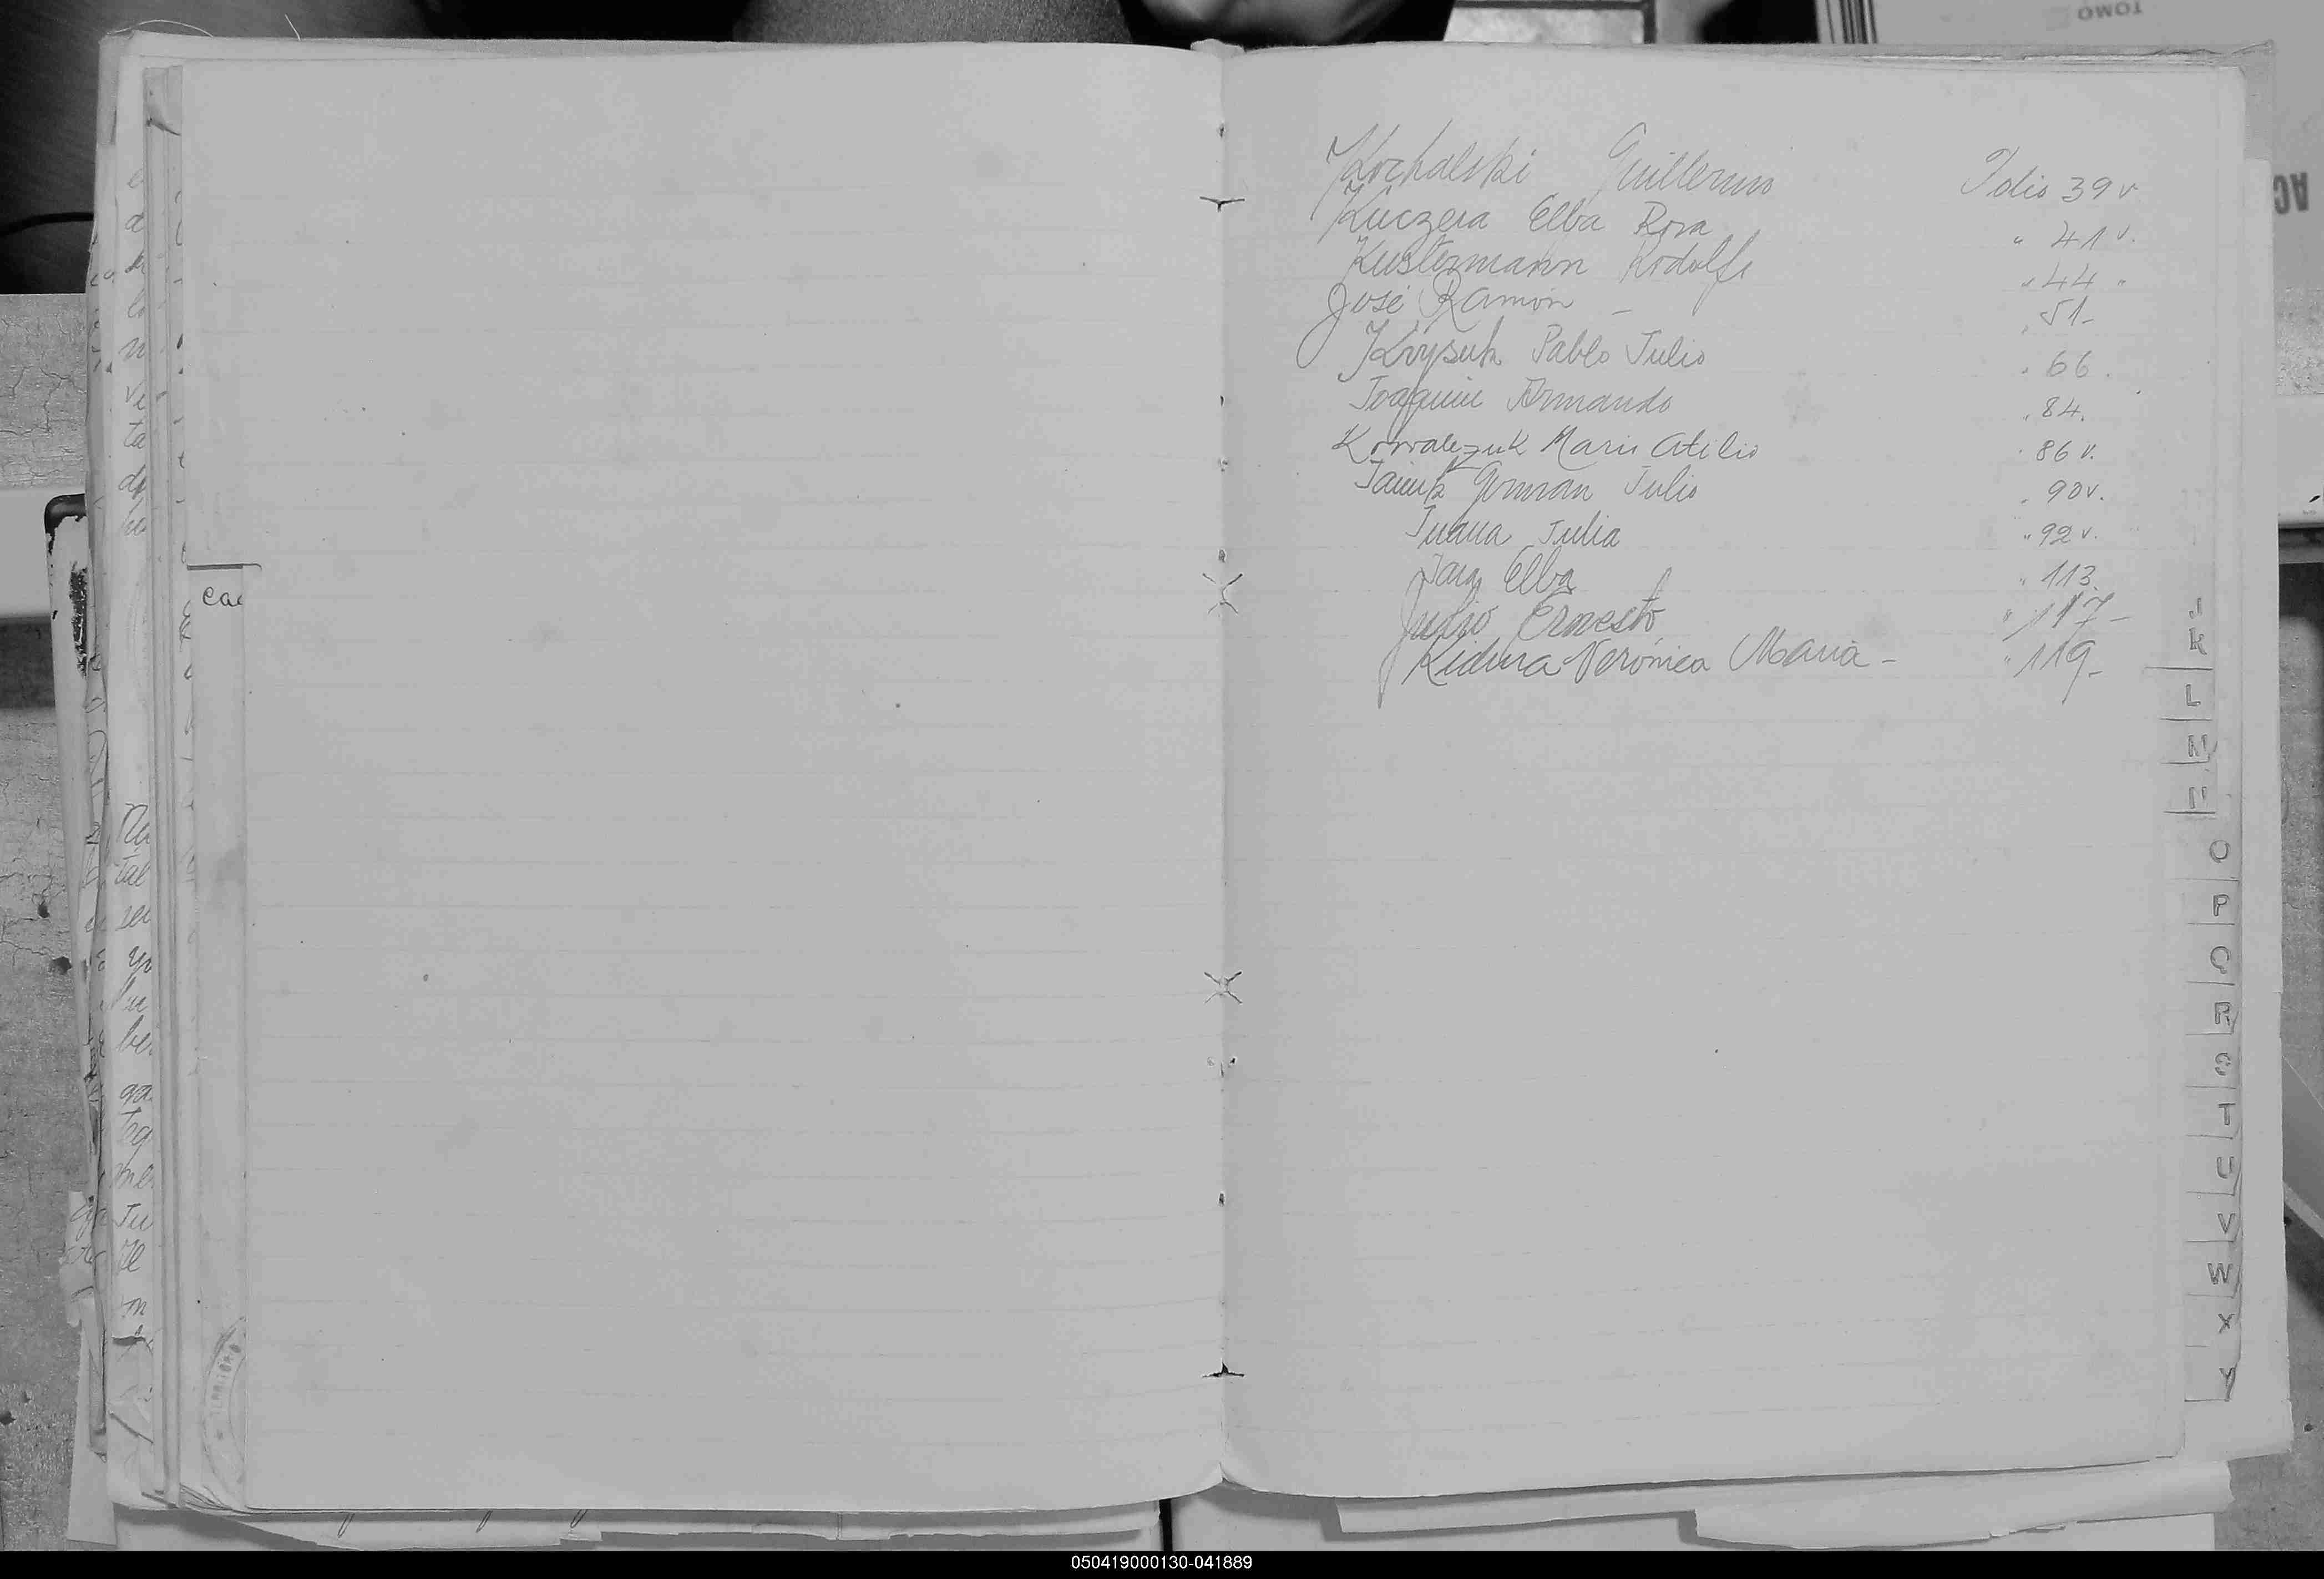 Kochalski Guillermo Folio 39 v
Kuczera Elba Rosa " 41 v.
Kustermann Rodolfo " 44 "
José Ramón - " 51-
Krysuk Pablo Julio " 66.
Joaquin Armando " 84.
Kowalczuk Mario Atilio " 86 v.
German Julio " 90 v.
Juana Julia " 92 v.
Jara Elba " 113.
Julio Ernesto " 117-
Verónica María - " 119-
J
K
L
M
N
O
P
Q
R
S
T
U
V
W
X
Y
TOMO
050419000130-041889